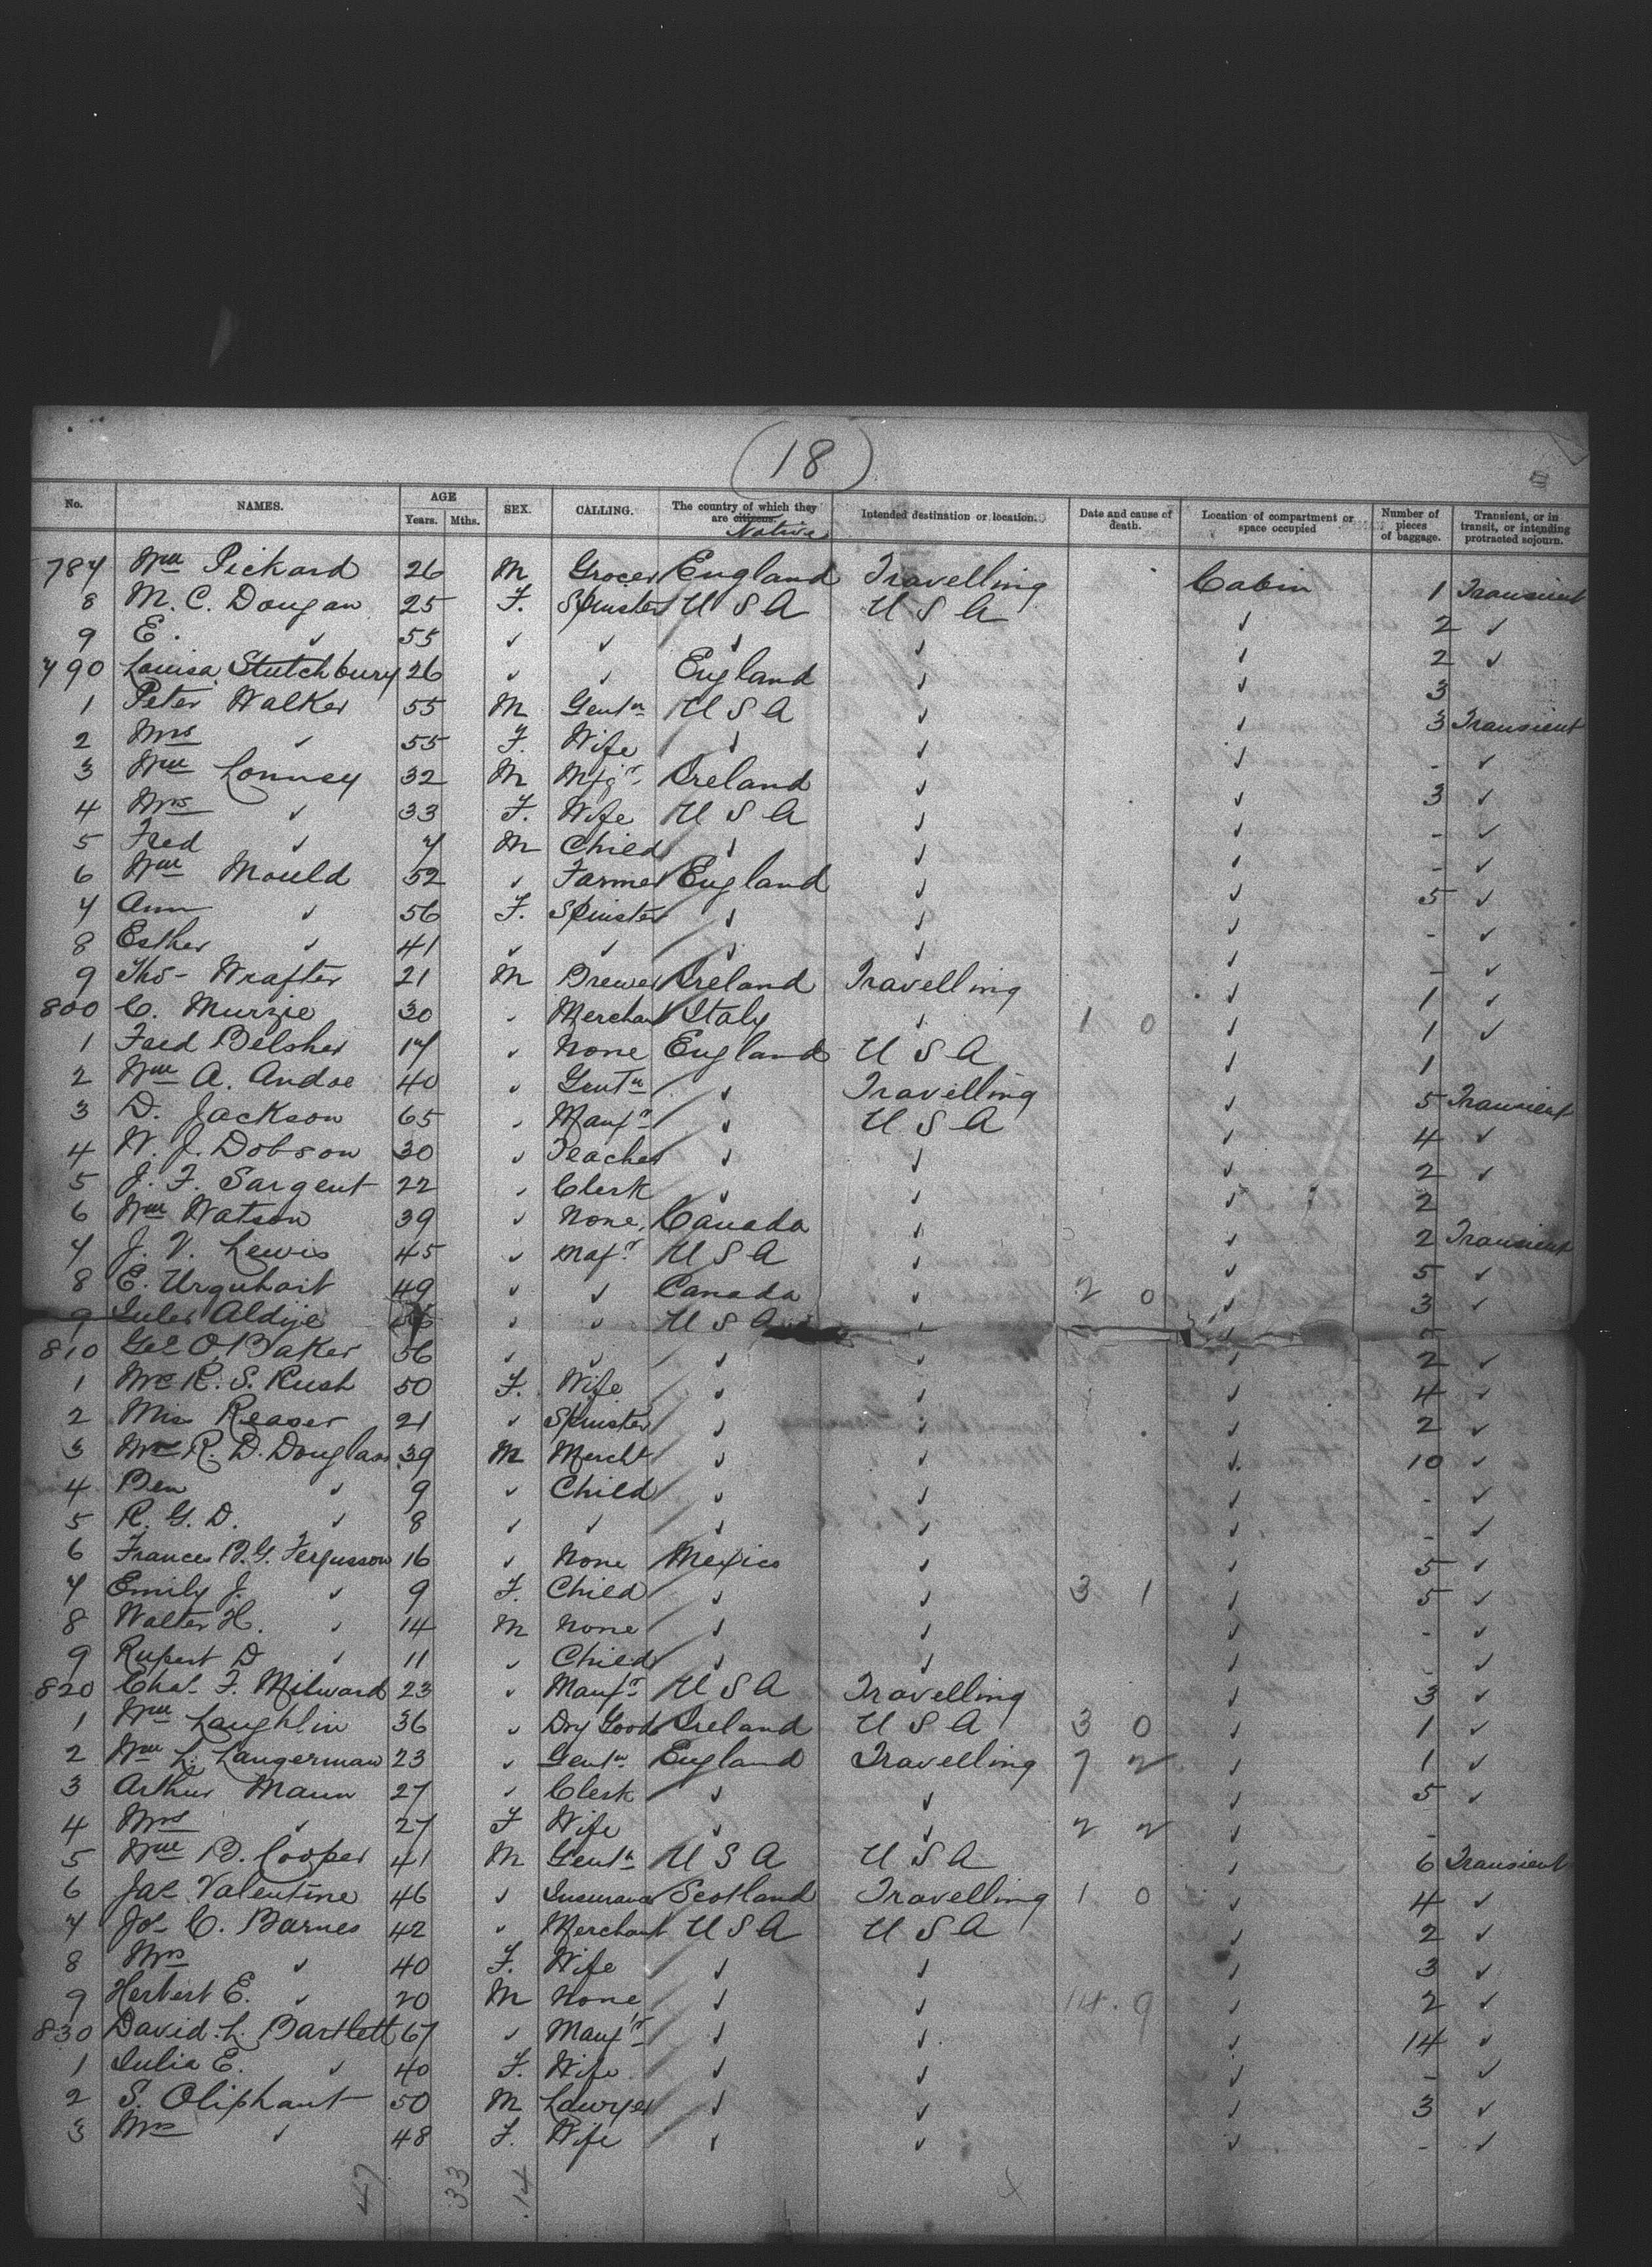 (18)
No. NAMES. AGE Years. Mths. SEX. CALLING. The country of which they are citizens. Native Intended destination or location. Date and cause of death. Location of compartment or space occupied Number of pieces of baggage. Transient, or in transit, or intending protracted sojourn.
787 Wm Pickard 26 M Grocer England Travelling Cabin 1 Transient
8 M. C. Dougan 25 F. Spinster U S A U S A ✓ 2 ✓
9 E. ✓ 55 ✓ ✓ ✓ ✓ ✓ 2 ✓
790 Louisa Stutchbury 26 ✓ ✓ England ✓ ✓ 3
1 Peter Walker 55 M Gentn U S A ✓ ✓ 3 Transient
2 Mrs ✓ 55 F. Wife ✓ ✓ ✓ - ✓
3 Wm Lonney 32 M Mfgr Ireland ✓ ✓ 3 ✓
4 Mrs ✓ 33 F. Wife U S A ✓ ✓ - ✓
5 Fred ✓ 7 M Child ✓ ✓ ✓ - ✓
6 Wm Mould 52 ✓ Farmer England ✓ ✓ 5 ✓
7 Ann ✓ 56 F. Spinster ✓ ✓ ✓ - ✓
8 Esther ✓ 41 ✓ ✓ ✓ ✓ ✓ - ✓
9 Tho- Wrafter 21 M Brewer Ireland Travelling ✓ 1 ✓
800 C. Murzie 30 ✓ Merchant Italy ✓ 1 0 ✓ 1 ✓
1 Fred Belsher 17 ✓ None England U S A ✓ 1
2 Wm A. Andoe 40 ✓ Gentn ✓ Travelling ✓ 5 Transient
3 D. Jackson 65 ✓ Manfr ✓ U S A ✓ 4 ✓
4 W. J. Dobson 30 ✓ Teacher ✓ ✓ ✓ 2 ✓
5 J. F. Sargent 22 ✓ Clerk ✓ ✓ ✓ 2
6 Wm Watson 39 ✓ None. Canada ✓ ✓ 2 Transient
7 J. V. Lewis 45 ✓ Mafr U S A ✓ ✓ 5 ✓
8 E. Urquhart 49 ✓ ✓ Canada ✓ 2 0 ✓ 3 ✓
9 Jules Aldije ✓ ✓ U S A ✓ ✓
810 Geo O. Baker 56 ✓ ✓ ✓ ✓ ✓ 2 ✓
1 Mrs R. S. Rush 50 F. Wife ✓ ✓ ✓ 4 ✓
2 Miss Reaser 21 ✓ Spinster ✓ ✓ ✓ 2 ✓
3 R. D. Douglass 39 M Mercht ✓ ✓ ✓ 10 ✓
4 Ben ✓ 9 ✓ Child ✓ ✓ ✓ - ✓
5 R. G. D. ✓ 8 ✓ ✓ ✓ ✓ ✓ - ✓
6 Frances B. G. Fergusson 16 ✓ None Mexico ✓ ✓ 5 ✓
7 Emily J. ✓ 9 F. Child ✓ ✓ 3 1 ✓ 5 ✓
8 Walter H. ✓ 14 M None ✓ ✓ ✓ - ✓
9 Rupert D ✓ 11 ✓ Child ✓ ✓ ✓ - ✓
820 Chas. F. Milward 23 ✓ Manfr U S A Travelling ✓ 3 ✓
1 Wm Laughlin 36 ✓ Dry Goods Ireland U S A 3 0 ✓ 1 ✓
2 Wm L. Langerman 23 ✓ Gentn England Travelling 7 2 ✓ 1 ✓
3 Arthur Mann 27 ✓ Clerk ✓ ✓ ✓ 5 ✓
4 Mrs ✓ 27 F Wife ✓ ✓ 2 2 ✓ -
5 Wm B. Cooper 41 M Gentn U S A U S A ✓ 6 Transient
6 Jas Valentine 46 ✓ Insurance Scotland Travelling 1 0 ✓ 4 ✓
7 Jos C. Barnes 42 ✓ Merchant U S A U S A ✓ 2 ✓
8 Mrs ✓ 40 F. Wife ✓ ✓ ✓ 3 ✓
9 Herbert E. ✓ 20 M None ✓ ✓ 14. 9 ✓ 2 ✓
830 David L. Bartlett 67 ✓ Manfr ✓ ✓ ✓ 14 ✓
1 Julia E. ✓ 40 F. Wife ✓ ✓ ✓ - ✓
2 S. Oliphant 50 M Lawyer ✓ ✓ ✓ 3 ✓
3 Mrs ✓ 48 F. Wife ✓ ✓ ✓ - ✓
47 33 14